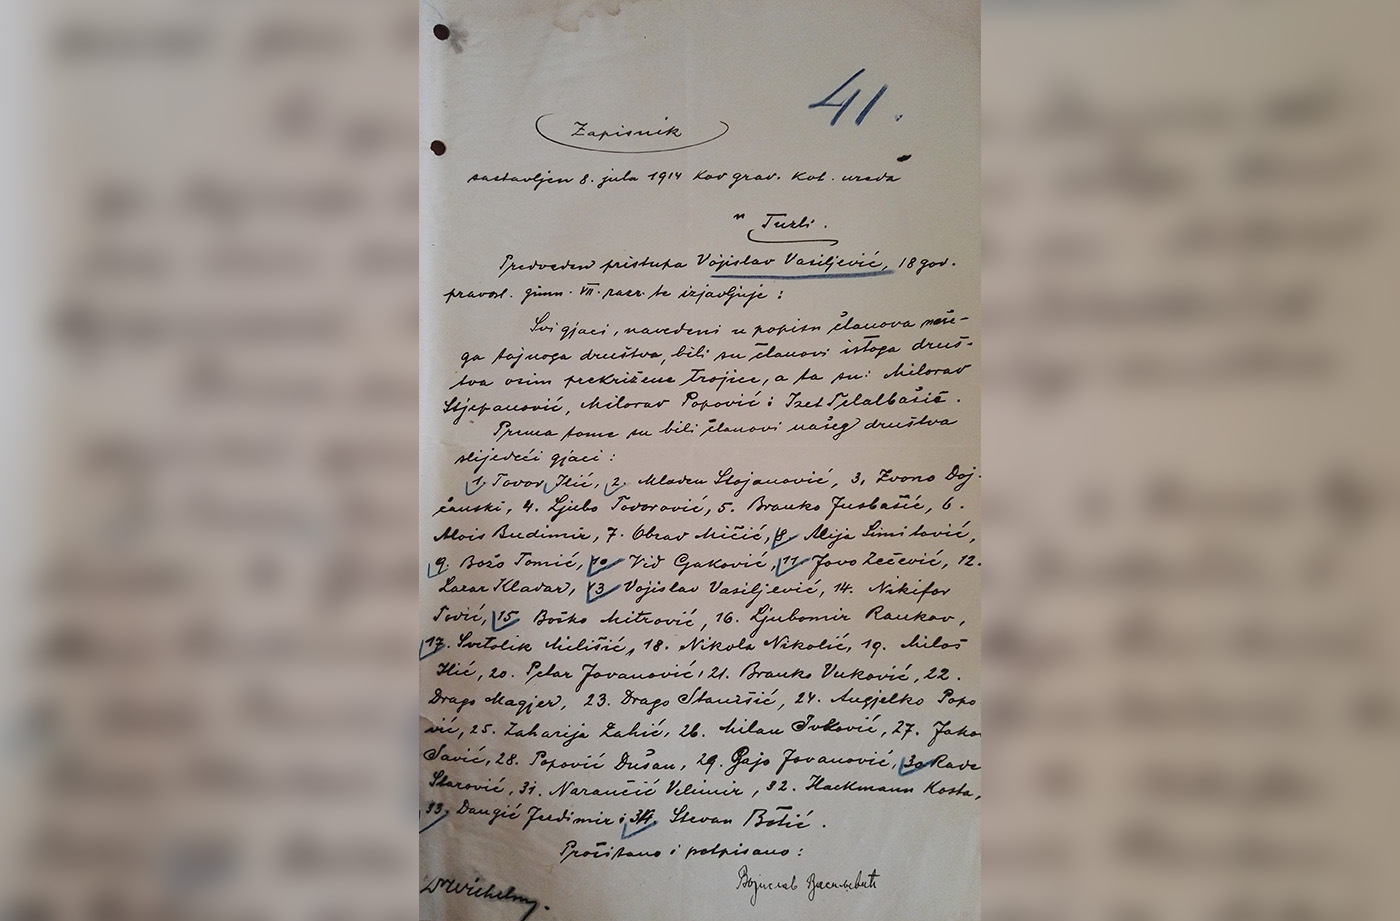 41.
Zapisnik
sastavljen 8. jula 1914 kod grad. kot. ureda
u Tuzli.
Predveden pristupa Vojislav Vasiljević, 18 god.
pravosl. gimn. VII. razr. te izjavljuje:
Svi gjaci, navedeni u popisu članova naše-
ga tajnoga društva, bili su članovi istoga druš-
tva osim prekrižene trojice, a ta su: Milorad
Stjepanović, Milorad Popović i Izet Telalbašić.
Prema tome su bili članovi našeg društva
slijedeći gjaci:
1. Todor Ilić, 2. Mladen Stojanović, 3. Zvono Doj-
čanski, 4. Ljubo Todorović, 5. Branko Jusbašić, 6.
Alois Budimir, 7. Obrad Mičić, 8. Alija
9. Božo Tomić, 10 Vid Gaković, 11 Jovo Zečević, 12.
Lazar Kladar, 13 Vojislav Vasiljević, 14. Nikifor
Todić, 15 Boško Mitrović, 16. Ljubomir Raukov,
17. Svetolik Milišić, 18. Nikola Nikolić, 19. Miloš
Ilić, 20. Petar Jovanović, 21. Branko Vuković, 22.
Drago Magjer, 23. Drago Stanišić, 24. Augjelko Popo
vić, 25. Zaharija Zahić, 26. Milan Ivković, 27. Jako
Savić, 28. Popović Dušan, 29. Gajo Jovanović, 30 Rade
Starović, 31. Narančić Velimir, 32. Hackmann Kosta,
33. Dangić Judimir i 34. Stevan Botić.
Pročitano i potpisano:
Војислав Васиљевић